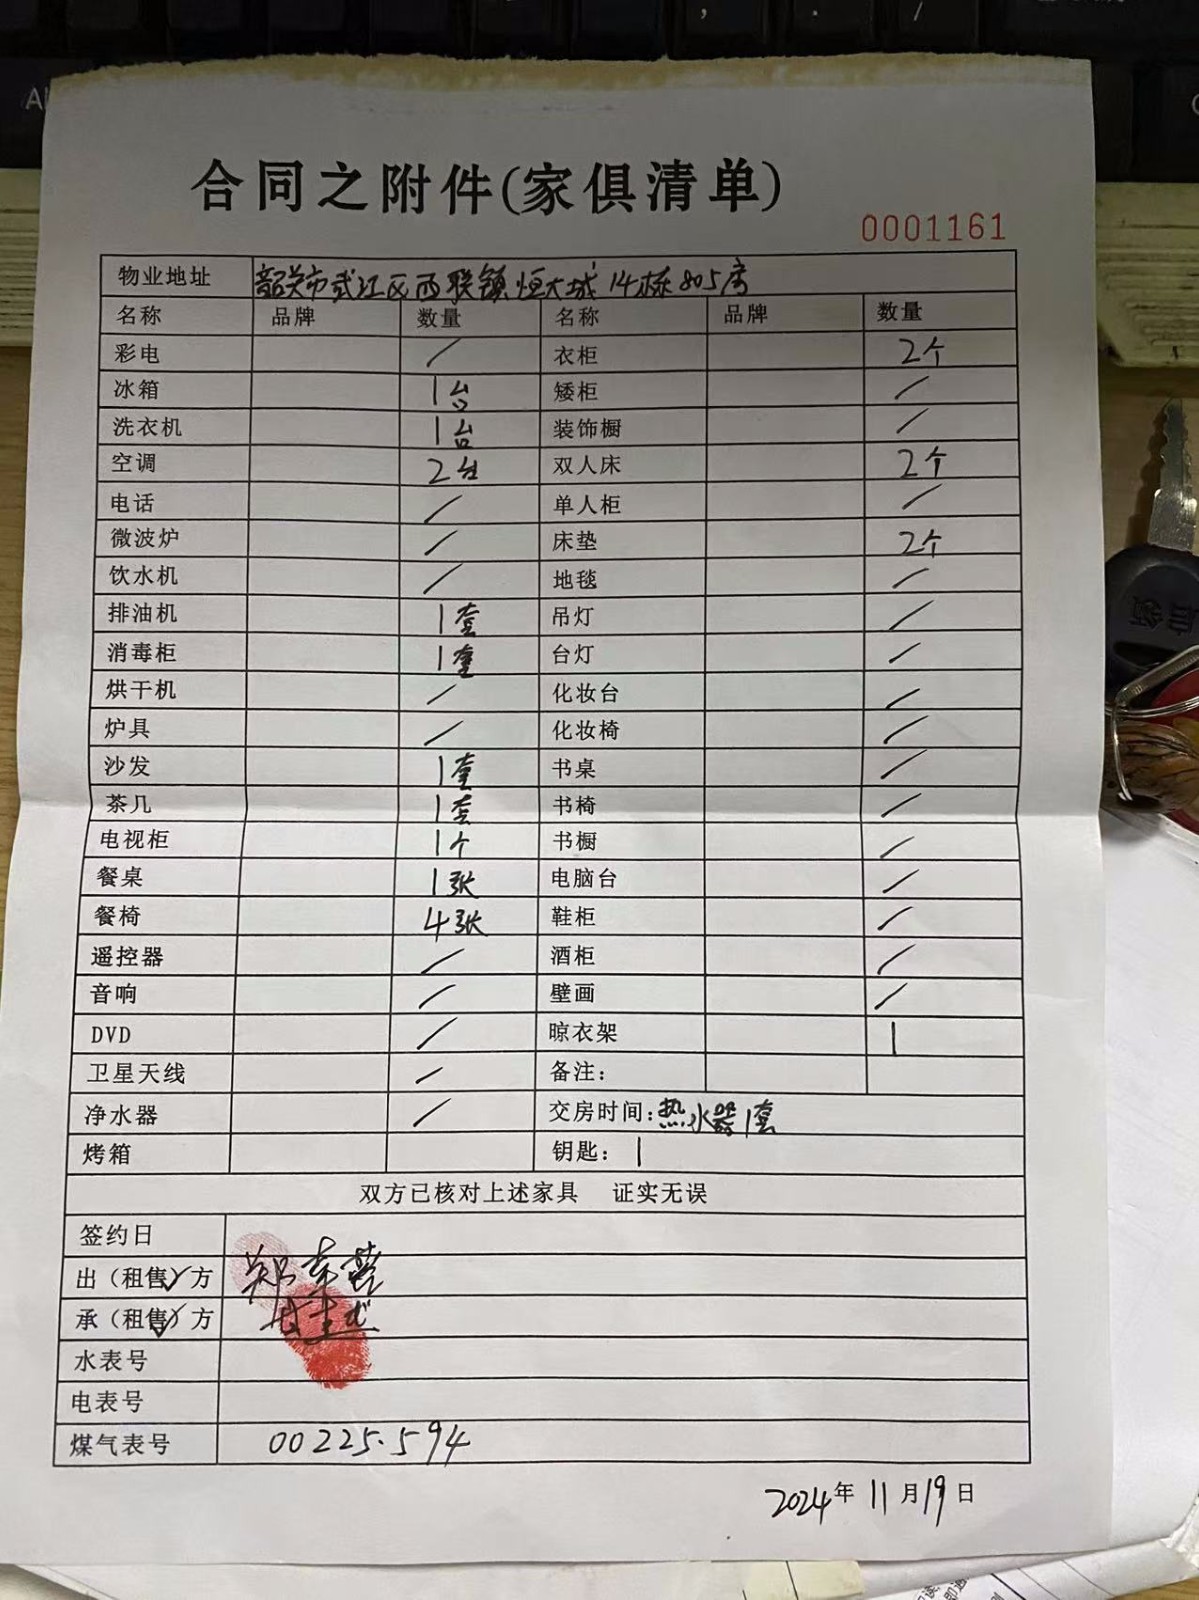 合同之附件(家俱清单)
0001161
物业地址 韶关市武江区西联镇恒大城14栋805房
名称 品牌 数量 名称 品牌 数量
彩电 / 衣柜 2个
冰箱 1台 矮柜 /
洗衣机 1台 装饰橱 /
空调 2台 双人床 2个
电话 / 单人柜 /
微波炉 / 床垫 2个
饮水机 / 地毯 /
排油机 1套 吊灯 /
消毒柜 1套 台灯 /
烘干机 / 化妆台 /
炉具 / 化妆椅 /
沙发 1套 书桌 /
茶几 1套 书椅 /
电视柜 1个 书橱 /
餐桌 1张 电脑台 /
餐椅 4张 鞋柜 /
遥控器 / 酒柜 /
音响 / 壁画 /
DVD / 晾衣架 1
卫星天线 / 备注:
净水器 / 交房时间:热水器1套
烤箱 钥匙: 1
双方已核对上述家具 证实无误
签约日
出（租售）方
承（租售）方
水表号
电表号
煤气表号 00225.594
2024年11月19日